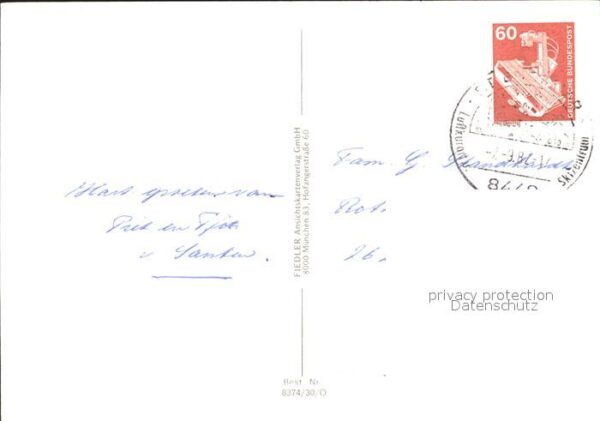 60
DEUTSCHE BUNDESPOST
Luftkurort
Skizentrum
Hart groeten van
Piet en
v Santen.
FIEDLER Ansichtskartenverlag GmbH
8000 München 83, Hofangerstraße 60
Fam. G.
26.
privacy protection
Datenschutz
Best Nr.
8374/30/O